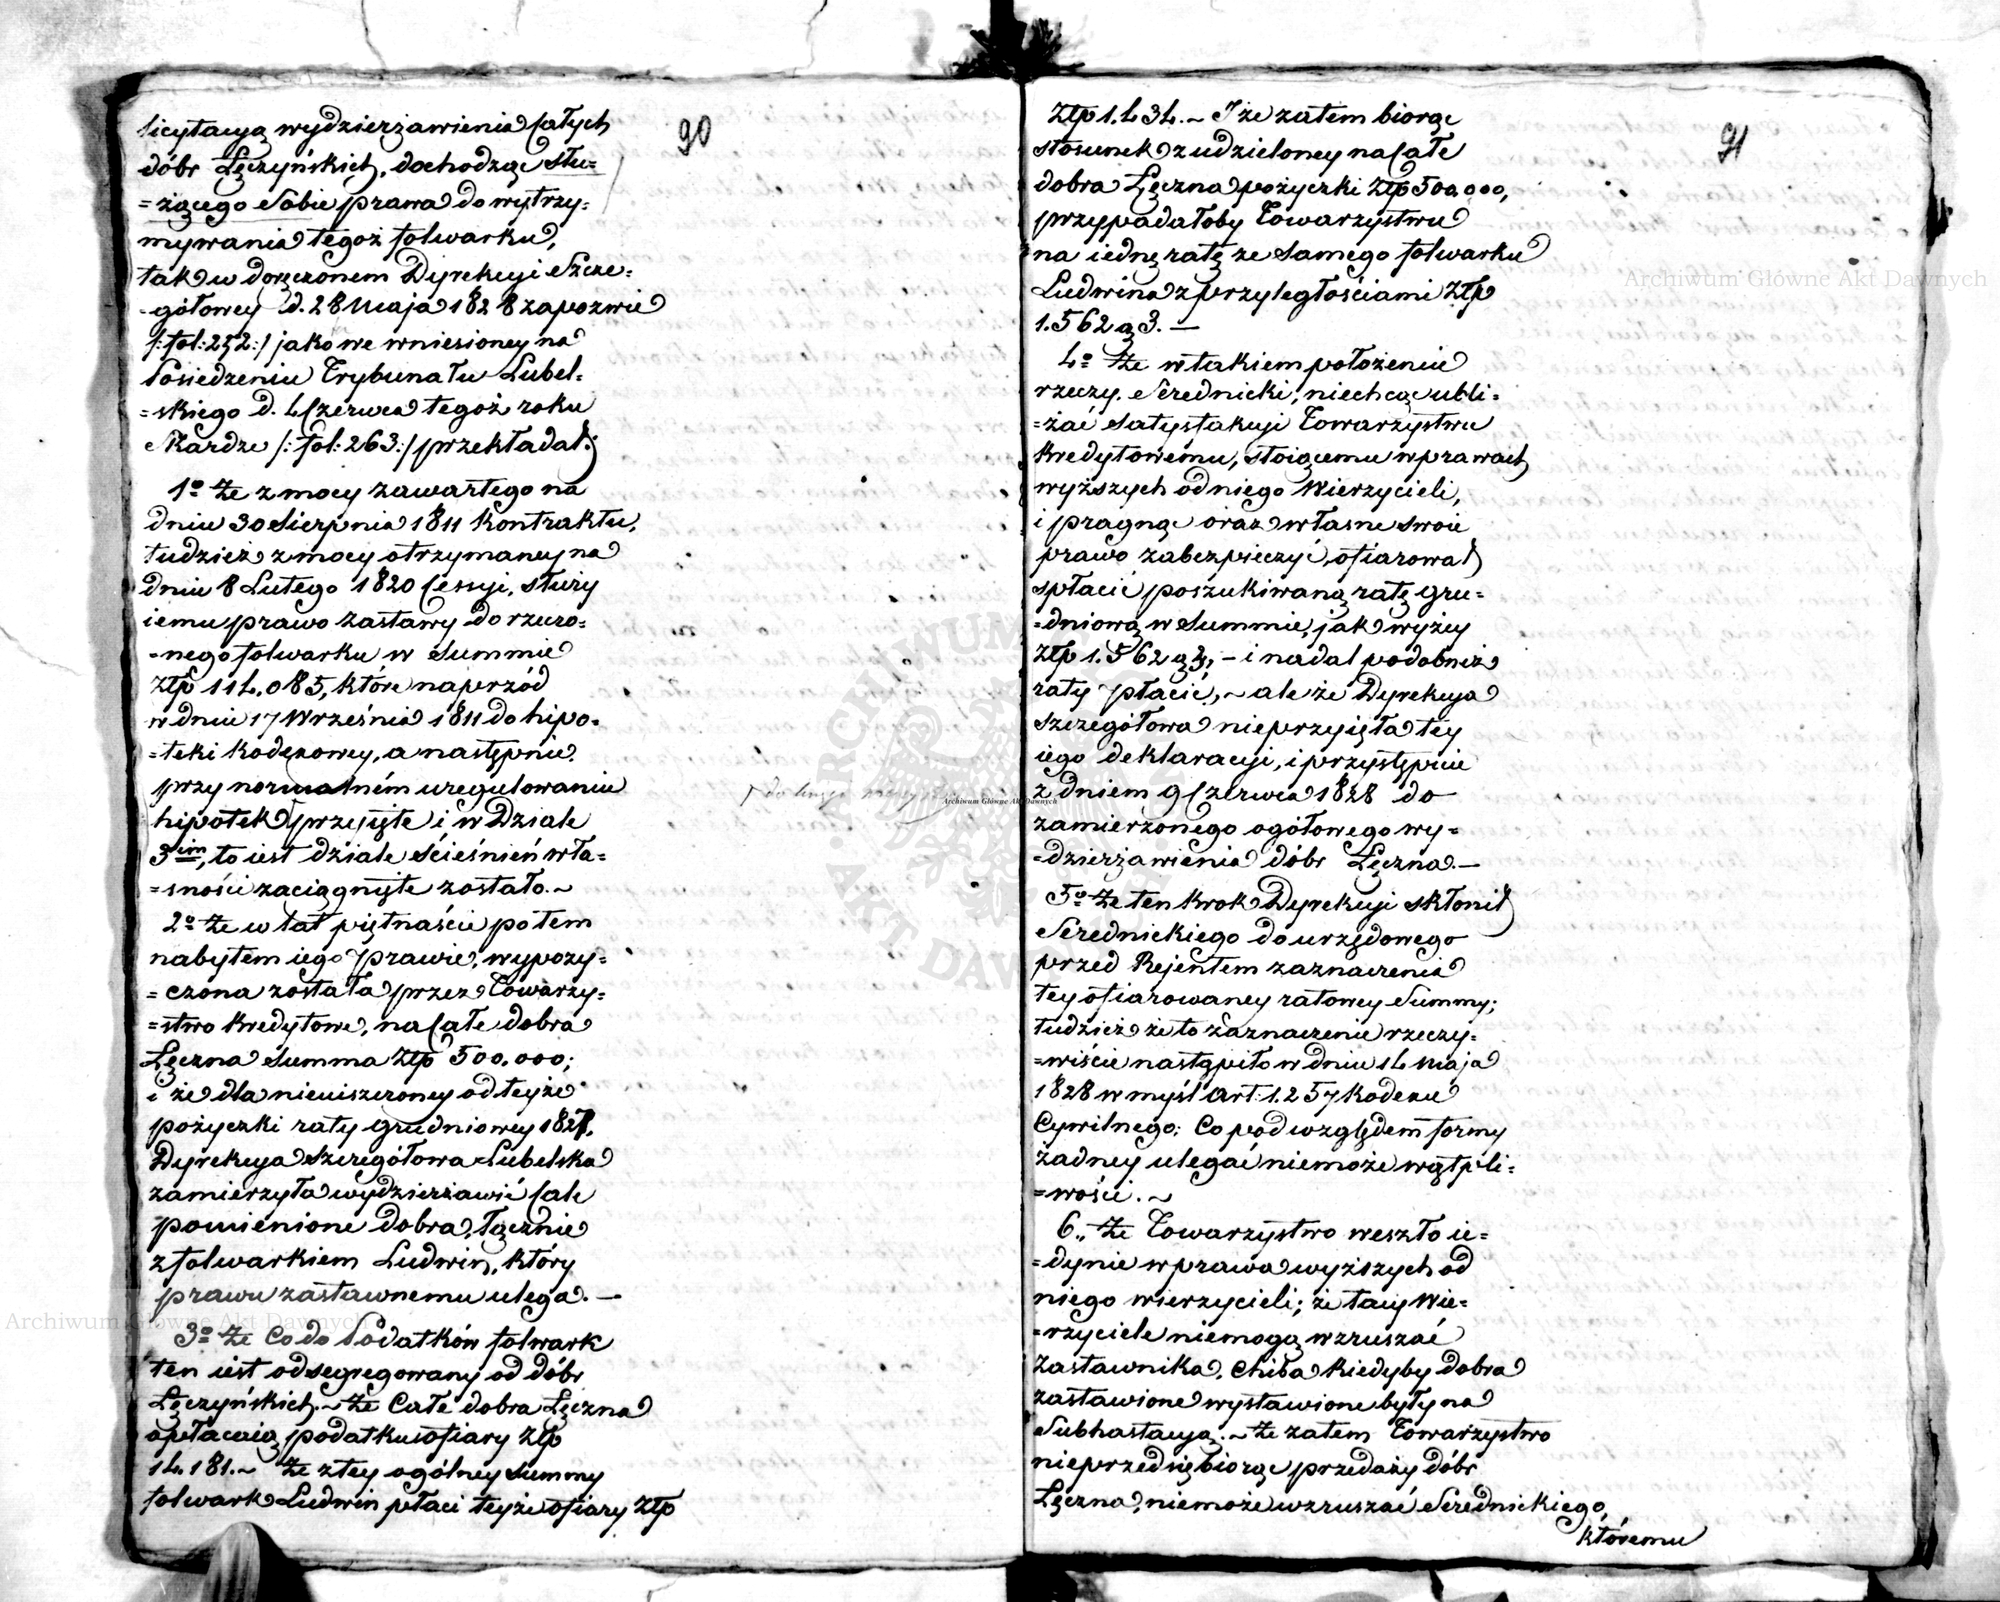 90
licytacyą wydzierżawienia całych
dóbr Łęczyńskich, dochodząc słu=
=żącego Sobie prawa do wytrzy=
mywania tegoż folwarku,
tak w doręczonem Dyrekcyi Szcze=
=gółowey d. 28 Maja 1828 zapozwie
/:fol:252:/ jako we wniesioney na
Posiedzeniu Trybunału Lubel=
=skiego d. 4 Czerwca tegoż roku
Skardze /:fol:263:/ przekładał;
1º Że z mocy zawartego na
dniu 30 Sierpnia 1811 Kontraktu,
tudzież z mocy otrzymaney na
dniu 8 Lutego 1820 Cessyi, służy
iemu prawo zastawy do rzeczo=
=nego folwarku w Summie
Złp 114.085, które naprzód
w dniu 17 Września 1811 do hipo=
=teki kodexowey, a następnie
przy normalném uregulowaniu
hipotek przyięte i w Dziale
3cim, to iest dziale ścieśnień wła=
=sności zaciągnięte zostało.~
2º Że w lat piętnaście po tem
nabytem iego prawie, wypoży=
=czona została przez Towarzy=
=stwo kredytowe, na Całe dobra
Łęczna Summa Złp 500.000;
i że dla nieuiszczoney od teyże
pożyczki raty grudniowey 1827,
Dyrekcya Szczegółowa Lubelska
zamierzyła wydzierżawić Całe
pomienione dobra, łącznie
z folwarkiem Ludwin, który
prawu zastawnemu ulega. —
3º Że Co do Podatków folwark
ten iest odsegregowany od dóbr
Łęczyńskich.~ Że Całe dobra Łęczna
opłacaią podatku ofiary Złp
14.181.~ Że z tey ogólney Summy
folwark Ludwin płaci teyże ofiary Złp
91
Złp 1.434.~ I że zatem biorąc
stosunek z udzieloney na Całe
dobra Łęczna pożyczki Złp 500.000,
przypadałoby Towarzystwu
na iednę ratę ze samego folwarku
Ludwina z przyległościami Złp
1.562 g 3. —
4º Że w takiem położeniu
rzeczy, Serednicki, niechcąc ubli=
=żać Satysfakcyi Towarzystwu
Kredytowému, stoiącemu w prawach
wyższych od niego Wierzycieli,
i pragnąc oraz własne swoie
prawo zabezpieczyć, ofiarował
spłacić poszukiwaną ratę gru=
=dniową w Summie, jak wyżey
Złp 1.562 g 3, – i nadal podobnież
raty płacić,~ ale że Dyrekcya
Szczegółowa nieprzyięła tey
iego deklaracyi, i przystępuie
z dniem 9 Czerwca 1828 do
zamierzonego ogółowego wy=
=dzierżawienia dóbr Łęczna.—
5º Że ten krok Dyrekcyi skłonił
Serednickiego do urzędowego
przed Rejentem zaznaczenia
tey ofiarowaney ratowey Summy;
tudzież że to zaznaczenie rzeczy=
=wiście nastąpiło w dniu 14 Maja
1828 w myśl Art: 1.257 Kodexu
Cywilnego; Co pod względem formy
żadney ulegać niemoże wątpli=
=wości.~
6., Że Towarzystwo weszło ie=
=dynie w prawa wyższych od
niego wierzycieli; że tacy Wie=
=rzyciele niemogą wzruszać
Zastawnika, Chiba kiedyby dobra
zastawione wystawione były na
Subhastacyą.~ Że zatem Towarzystwo
nieprzedsiębiorąc przedaży dóbr
Łęczna, niemoże wzruszać Serednickiego,
któremu
Archiwum Główne Akt Dawnych
Archiwum Główne Akt Dawnych
Archiwum Główne Akt Dawnych